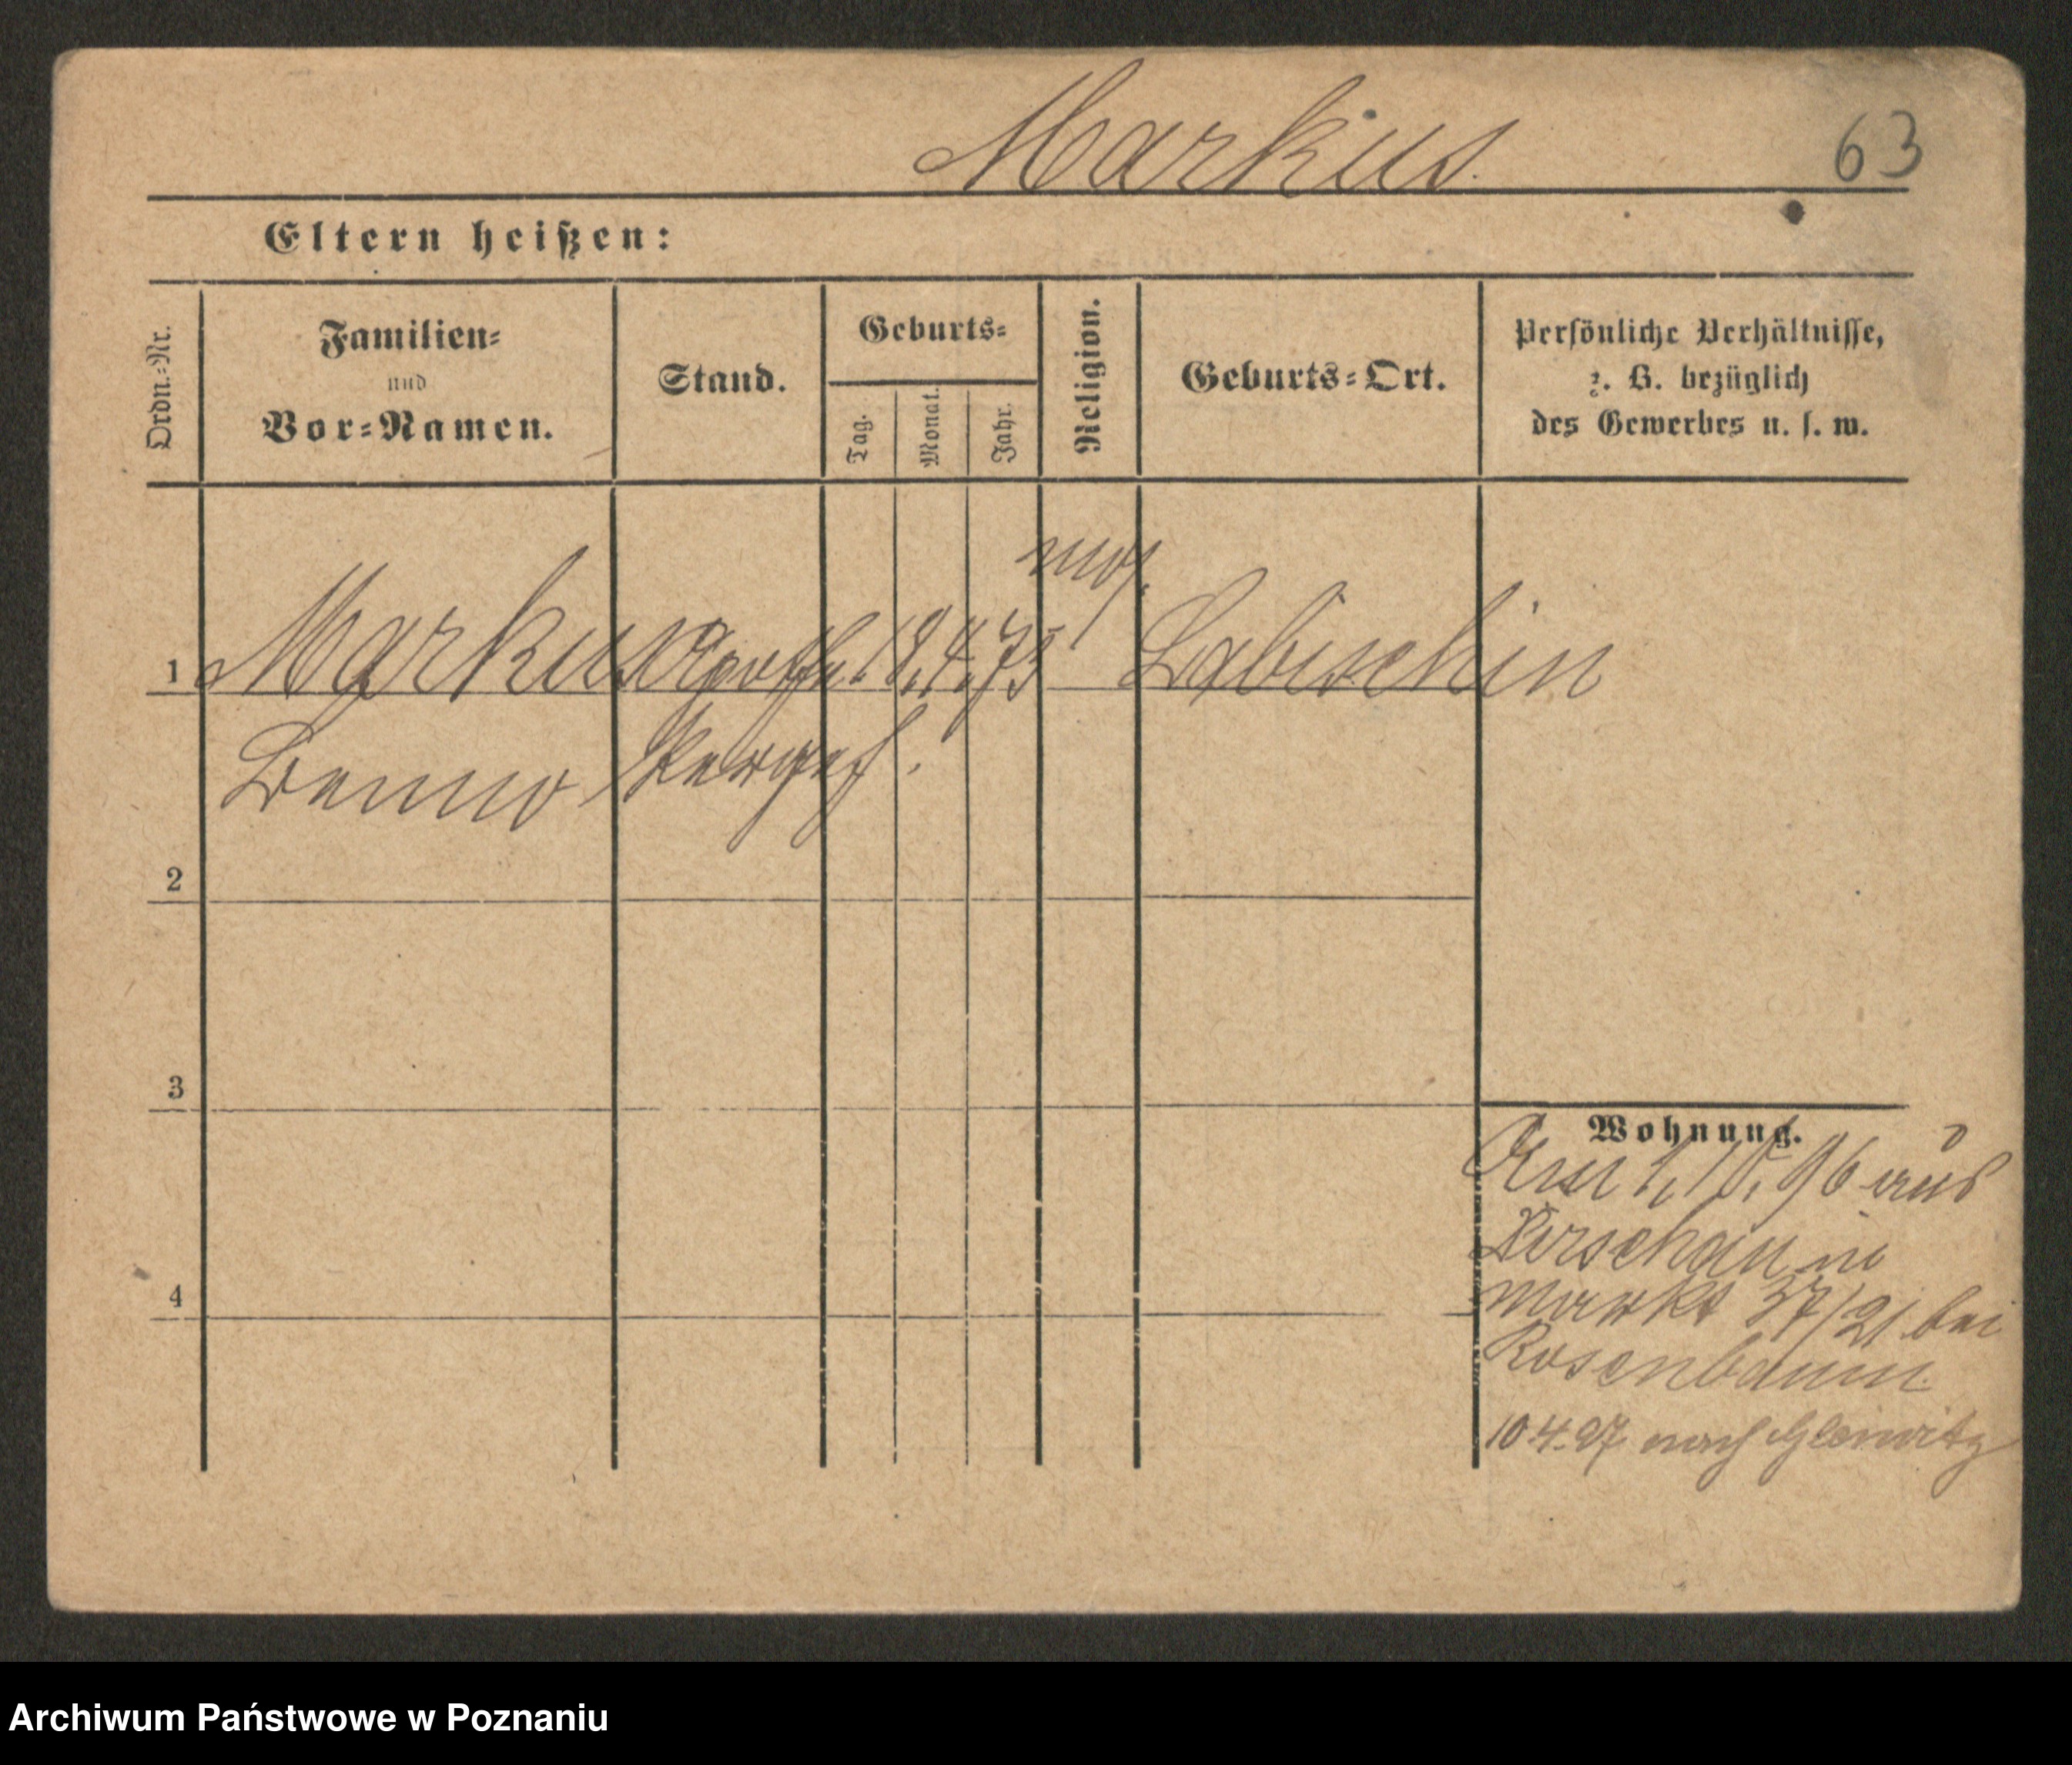 Markus.
63
Eltern heißen:
Ordn.-Nr.
Familien-
und
Vor-Namen.
Stand.
Geburts-
Tag.
Monat.
Jahr.
Religion.
Geburts-Ort.
Persönliche Verhältnisse,
z. B. bezüglich
des Gewerbes u. s. w.
mos.
1 Markus 18.4.75 Labischin
Benno
2
3
Wohnung.
96 aus
Dirschau in
4
Markt 37/21 bei
Rosenbaum.
10.4.97 nach Gleiwitz
Archiwum Państwowe w Poznaniu